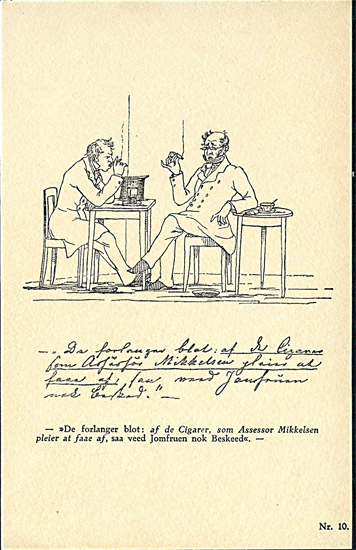 — „De forlanger blot: af de Cigarer
som Assessor Mikkelsen pleier at
faae af, saa veed Jomfruen
nok Beskeed." —
— »De forlanger blot: af de Cigarer, som Assessor Mikkelsen
pleier at faae af, saa veed Jomfruen nok Beskeed«. —
Nr. 10.